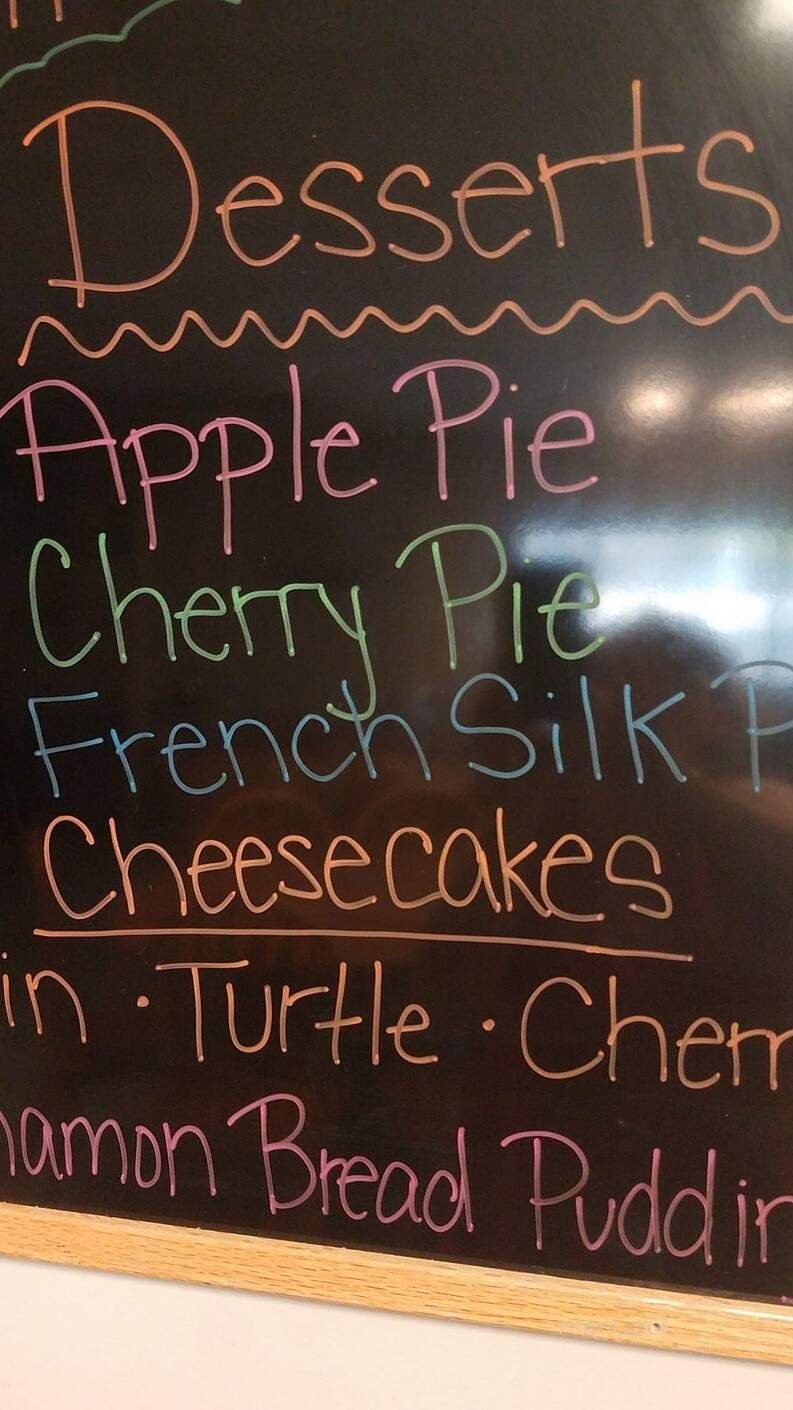 Desserts
Apple Pie
Cherry Pie
French Silk P
Cheesecakes
in · Turtle · Cherr
namon Bread Puddin